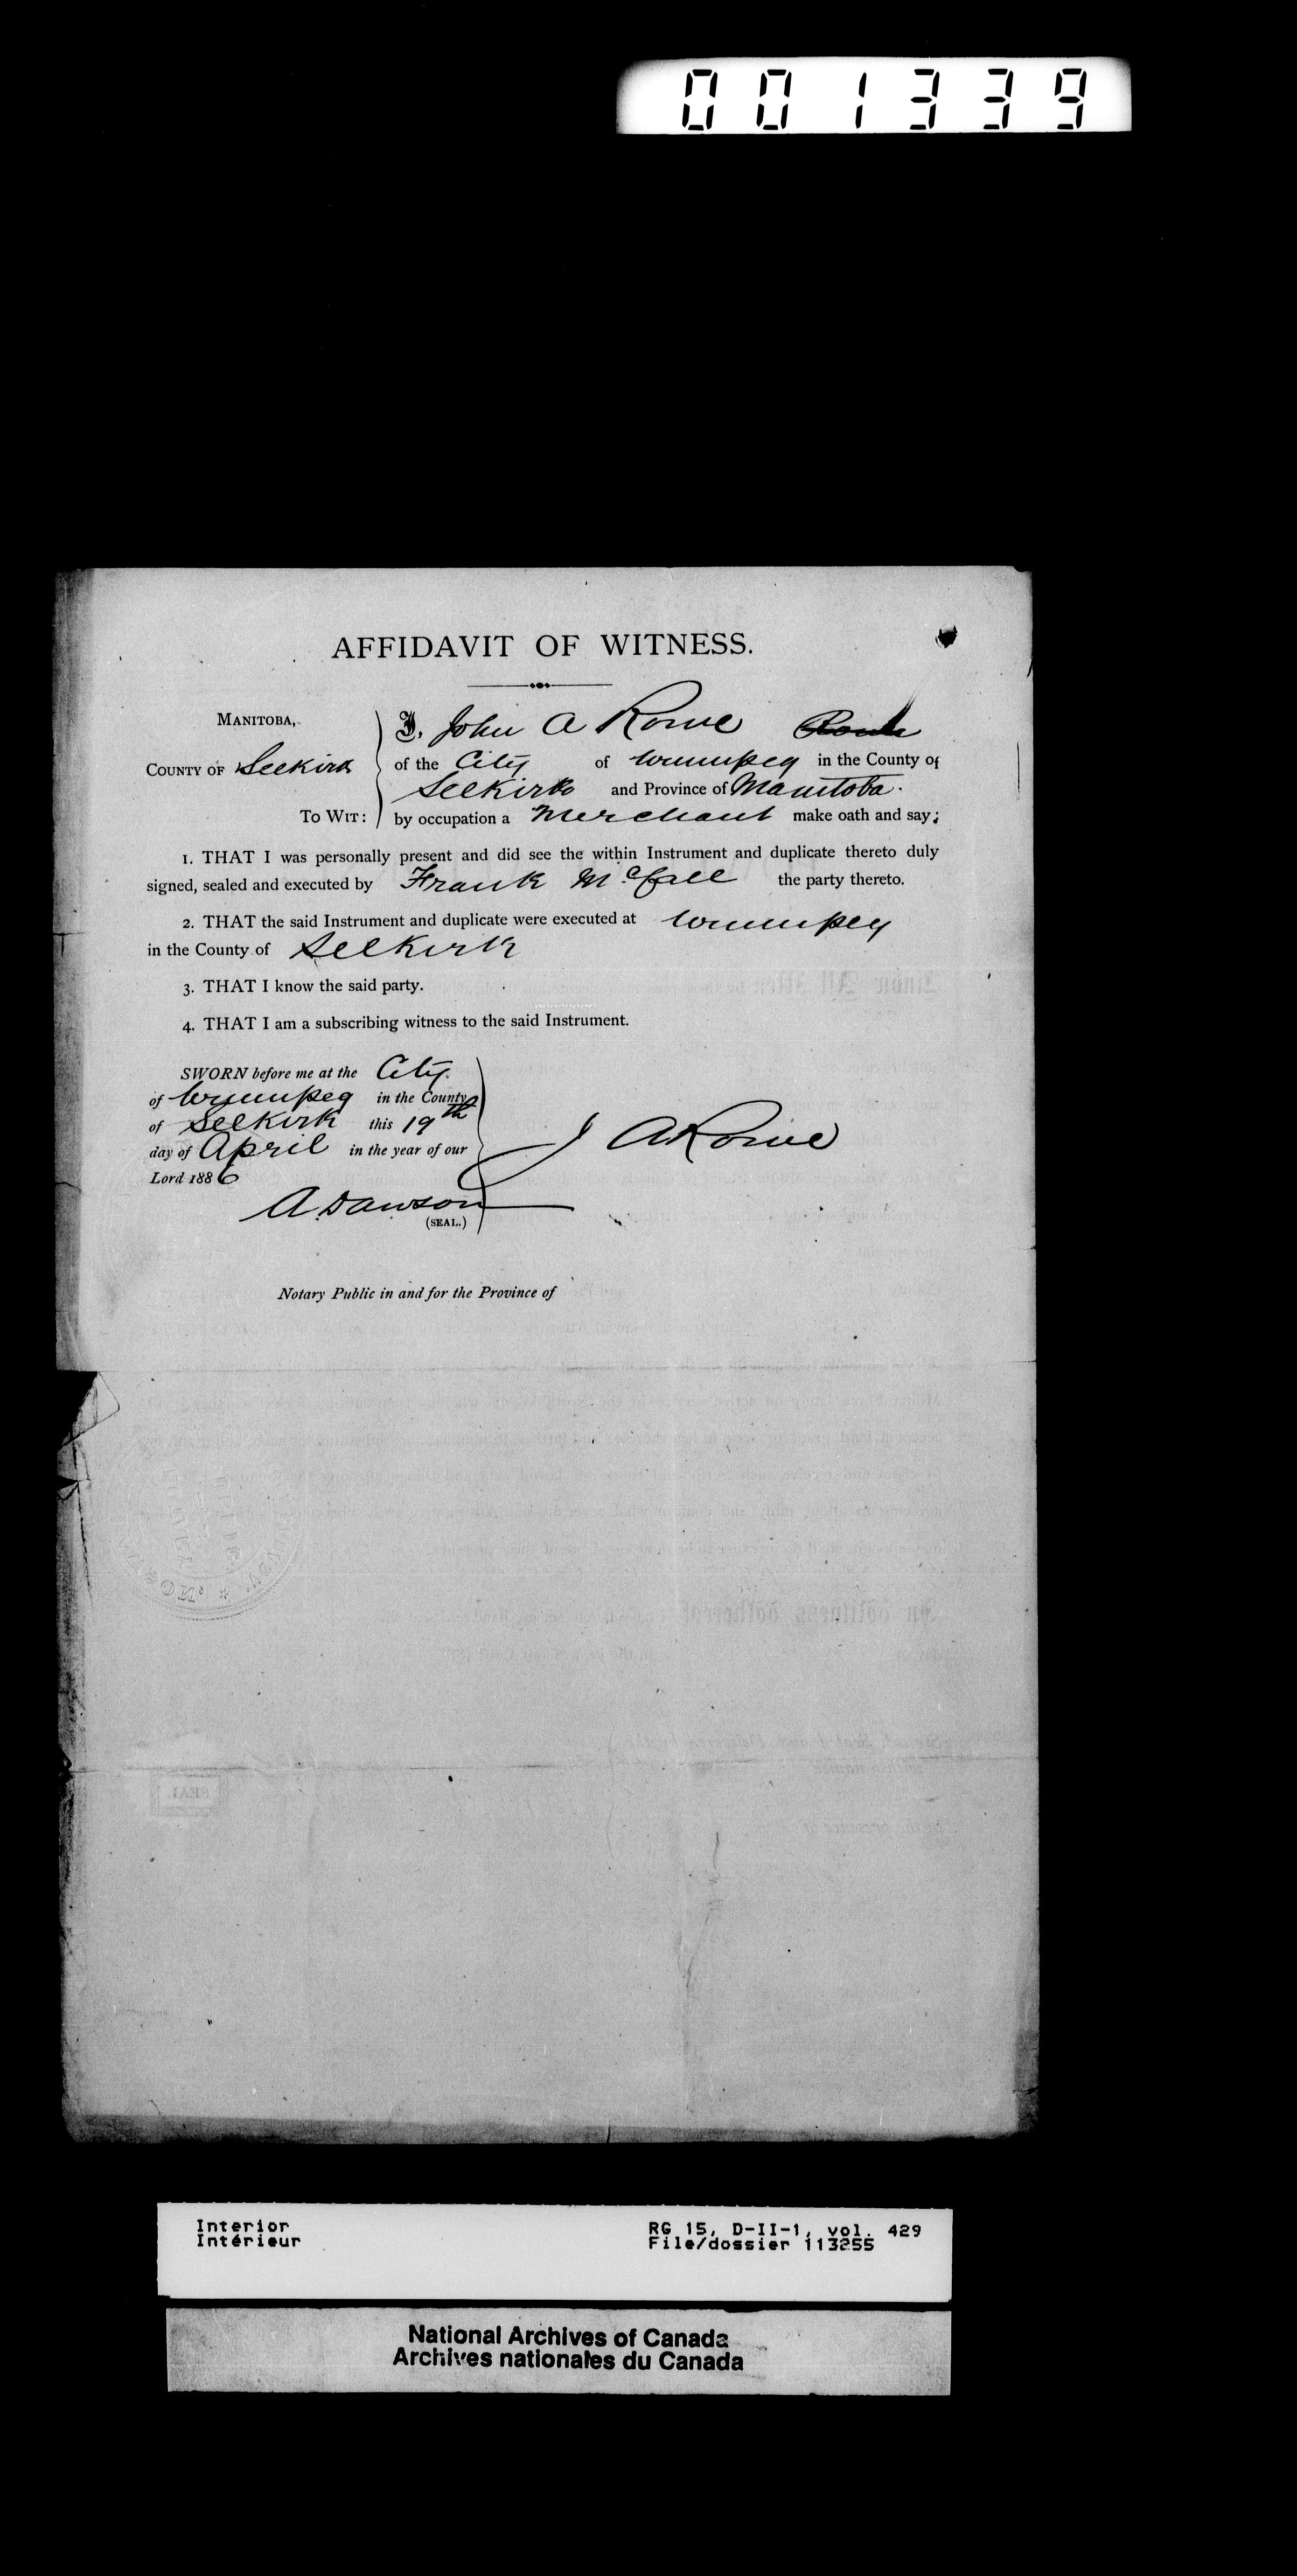 001339
AFFIDAVIT OF WITNESS.
MANITOBA,
COUNTY OF Selkirk
TO WIT:
I, John A Rowe
of the City of Winnipeg in the County of
Selkirk and Province of Manitoba.
by occupation a Merchant make oath and say;
1. THAT I was personally present and did see the within Instrument and duplicate thereto duly
signed, sealed and executed by Frank McCall the party thereto.
2. THAT the said Instrument and duplicate were executed at Winnipeg
in the County of Selkirk
3. THAT I know the said party.
4. THAT I am a subscribing witness to the said Instrument.
SWORN before me at the City
of Winnipeg in the County
of Selkirk this 19th
day of April in the year of our
Lord 1886
J A Rowe
A. Dawson
(SEAL.)
Notary Public in and for the Province of
Interior
Intérieur
RG 15, D-II-1, vol. 429
File/dossier 113255
National Archives of Canada
Archives nationales du Canada